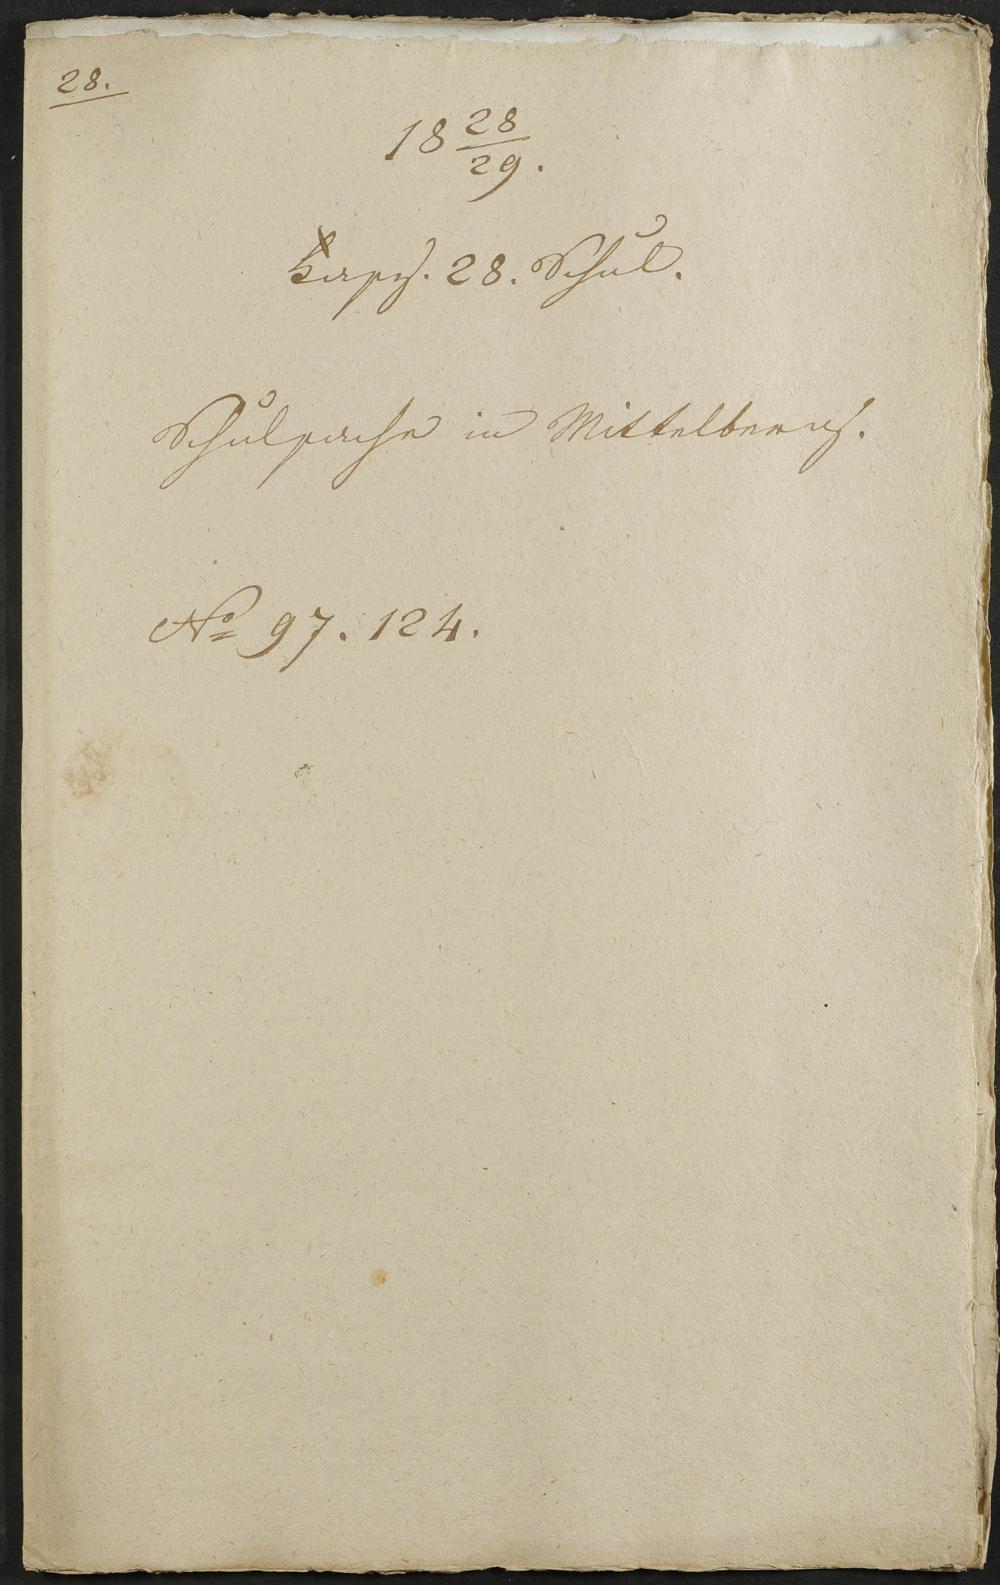 28.
18 28/29.
Caps. 28. Schul.
Schulsache in Mittelberg.
No 97. 124.